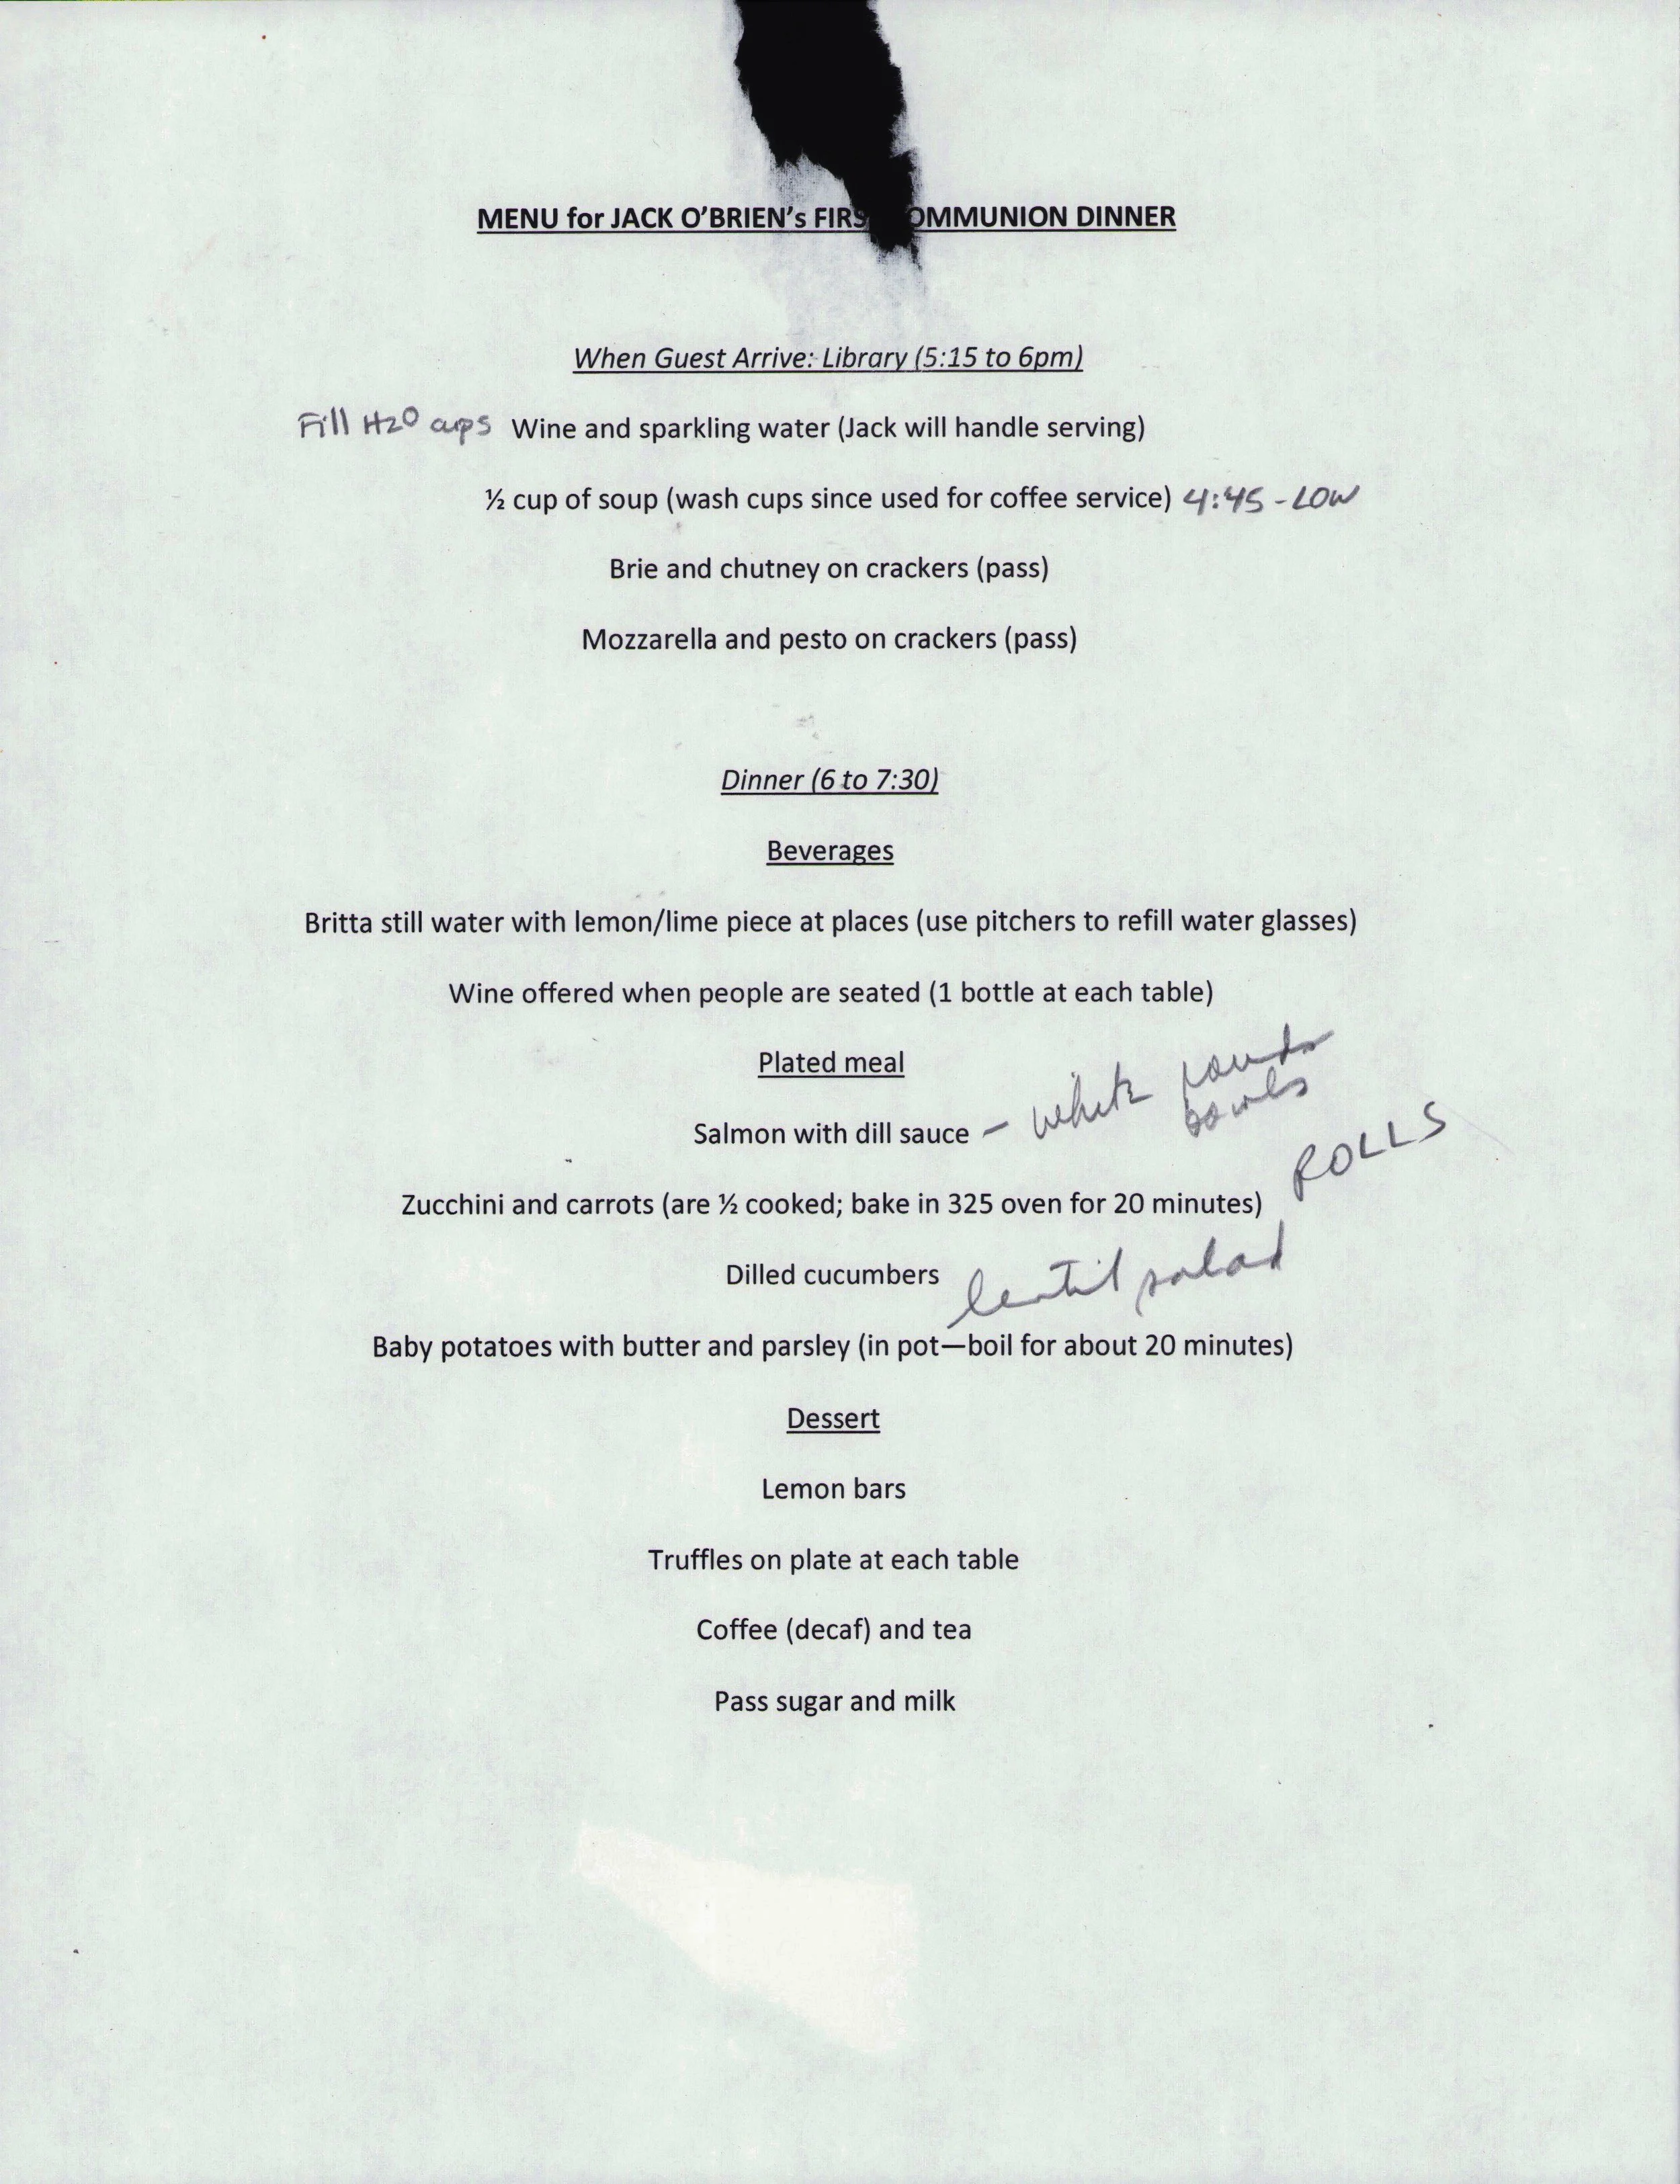 MENU for JACK O'BRIEN's FIRS OMMUNION DINNER
When Guest Arrive: Library (5:15 to 6pm)
Fill H2O cups Wine and sparkling water (Jack will handle serving)
½ cup of soup (wash cups since used for coffee service) 4:45 - LOW
Brie and chutney on crackers (pass)
Mozzarella and pesto on crackers (pass)
Dinner (6 to 7:30)
Beverages
Britta still water with lemon/lime piece at places (use pitchers to refill water glasses)
Wine offered when people are seated (1 bottle at each table)
Plated meal
Salmon with dill sauce – white round
bowls
ROLLS
Zucchini and carrots (are ½ cooked; bake in 325 oven for 20 minutes)
Dilled cucumbers lentil salad
Baby potatoes with butter and parsley (in pot—boil for about 20 minutes)
Dessert
Lemon bars
Truffles on plate at each table
Coffee (decaf) and tea
Pass sugar and milk